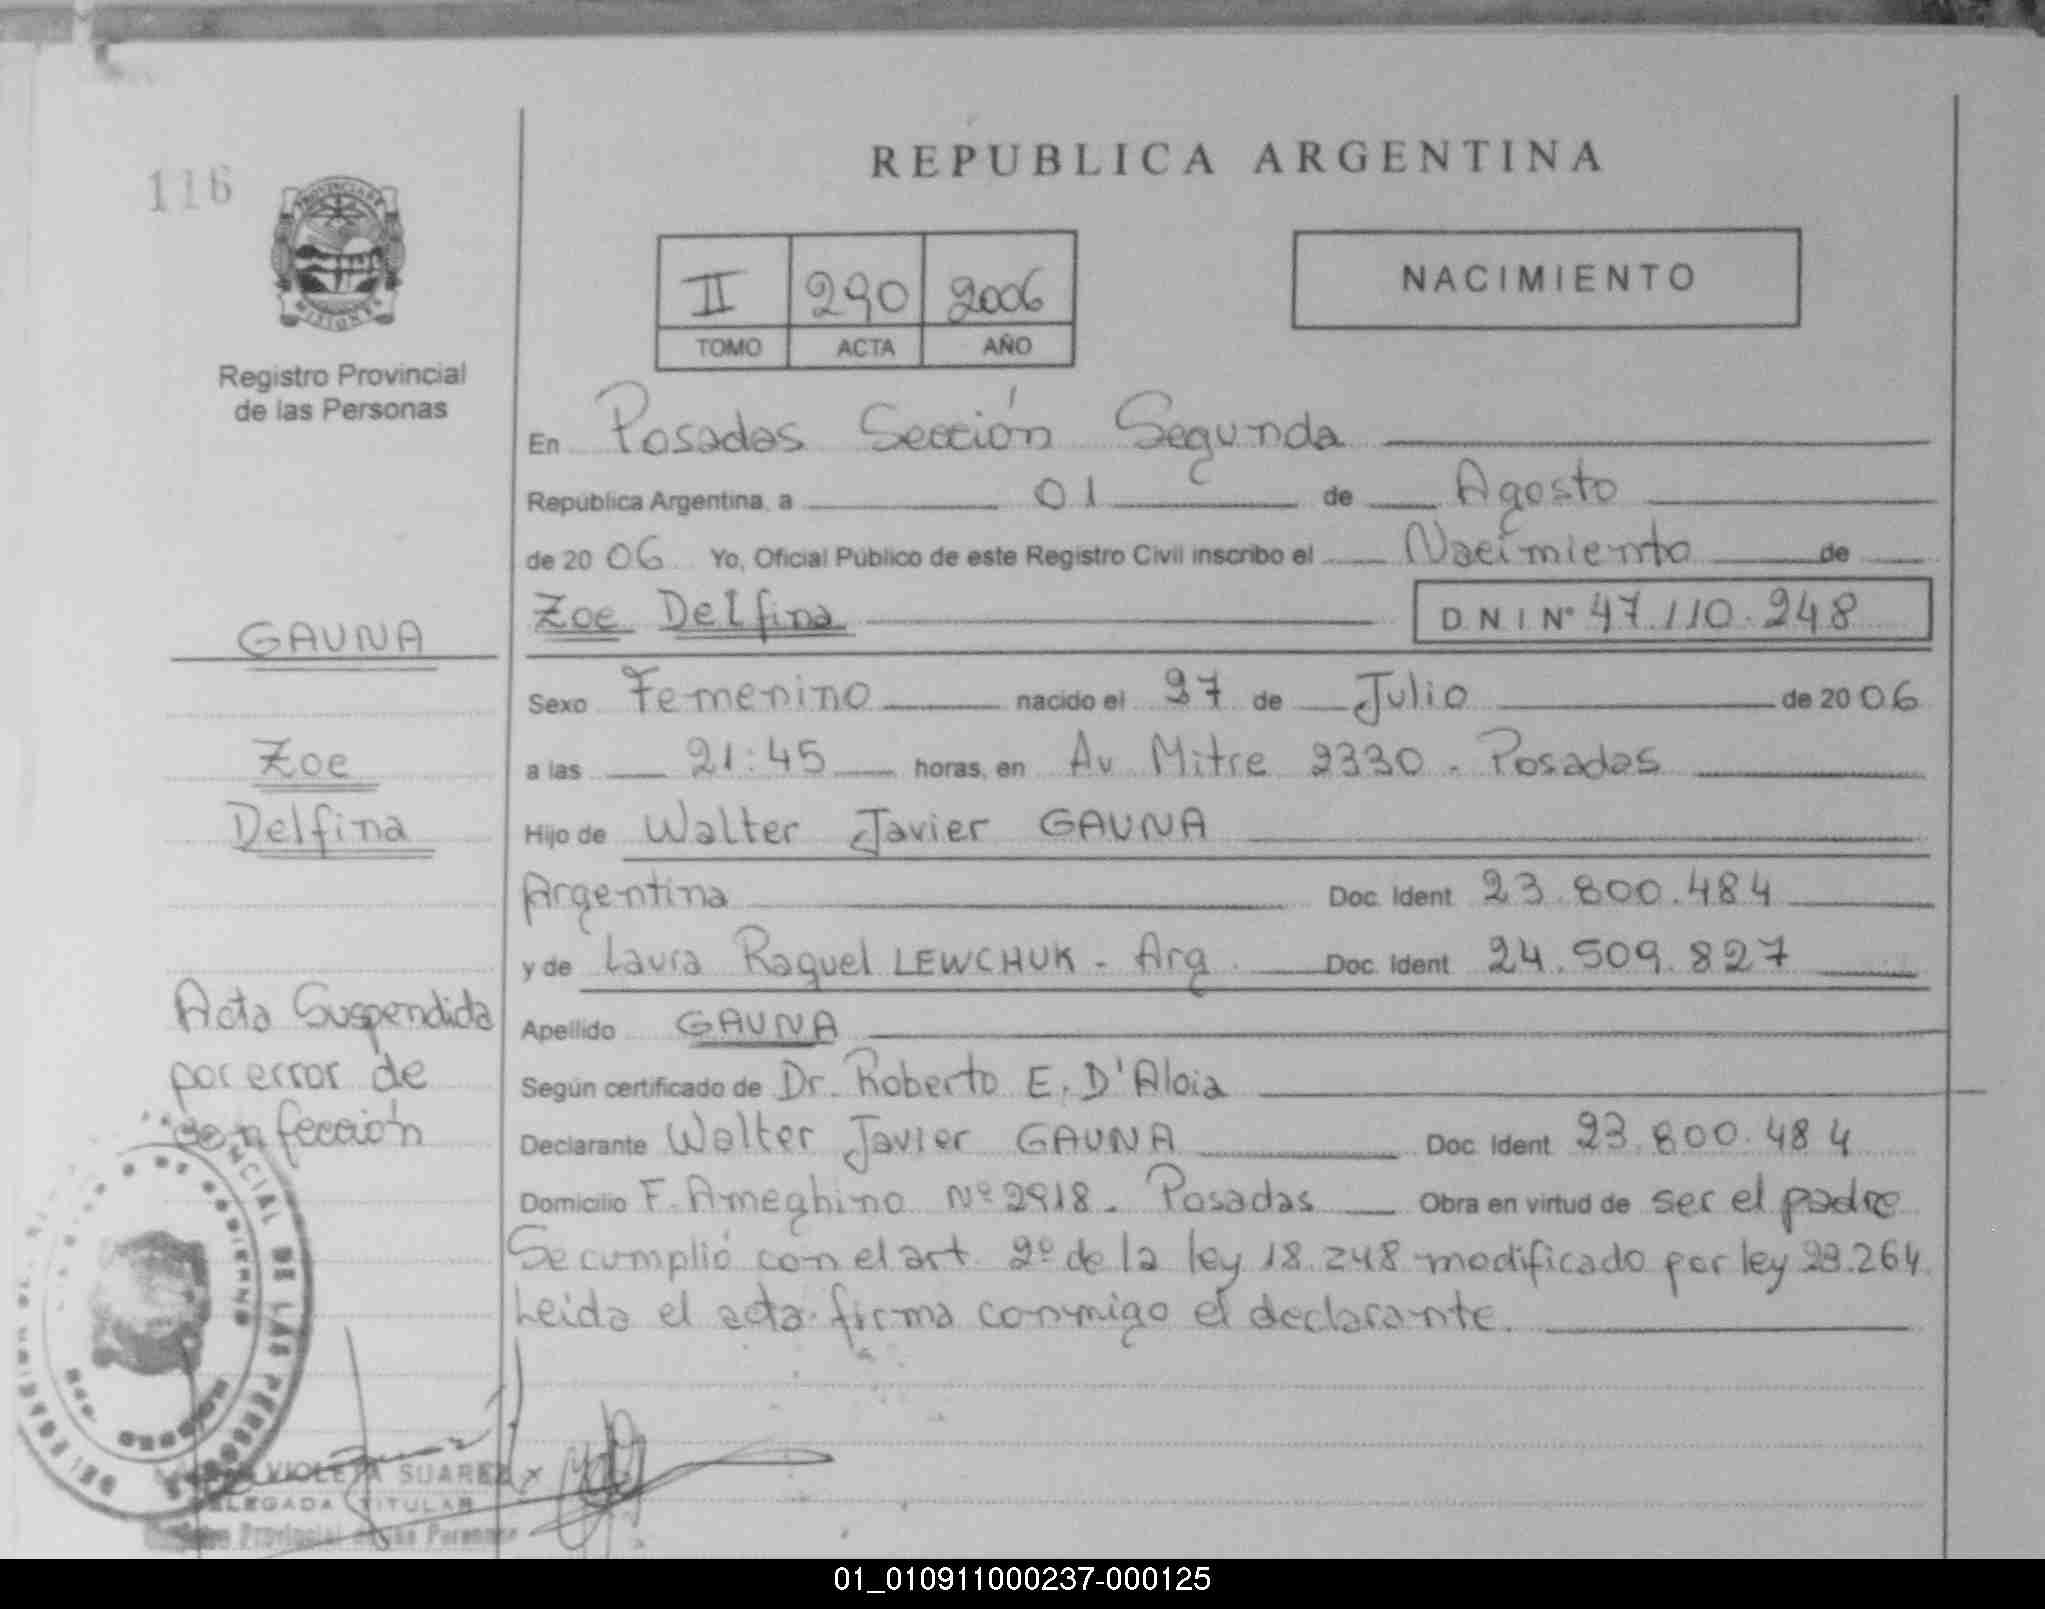 REPUBLICA ARGENTINA
116
PROVINCIA DE
MISIONES
Registro Provincial
de las Personas
II 290 2006
TOMO ACTA AÑO
NACIMIENTO
En Posadas Sección Segunda
República Argentina, a 01 de Agosto
de 2006 Yo, Oficial Público de este Registro Civil inscribo el Nacimiento de
Zoe Delfina D.N.I Nº 47.110.248
GAUNA
Sexo Femenino nacido el 27 de Julio de 2006
Zoe
a las 21:45 horas, en Av. Mitre 2330 - Posadas
Delfina
Hijo de Walter Javier GAUNA
Argentina Doc. Ident 23.800.484
y de Laura Raquel LEWCHUK - Arg. Doc. Ident 24.509.827
Acta Suspendida
por error de
confección
Apellido GAUNA
Según certificado de Dr. Roberto E. D'Aloia
Declarante Walter Javier GAUNA Doc. Ident 23.800.484
Domicilio F. Ameghino Nº 2918. Posadas Obra en virtud de ser el padre
Se cumplió con el art. 2º de la ley 18.248 modificado por ley 23.264
Leida el acta firma conmigo el declarante.
VIOLETA SUAREZ
DELEGADA TITULAR
Provincial de las Personas
01_010911000237-000125